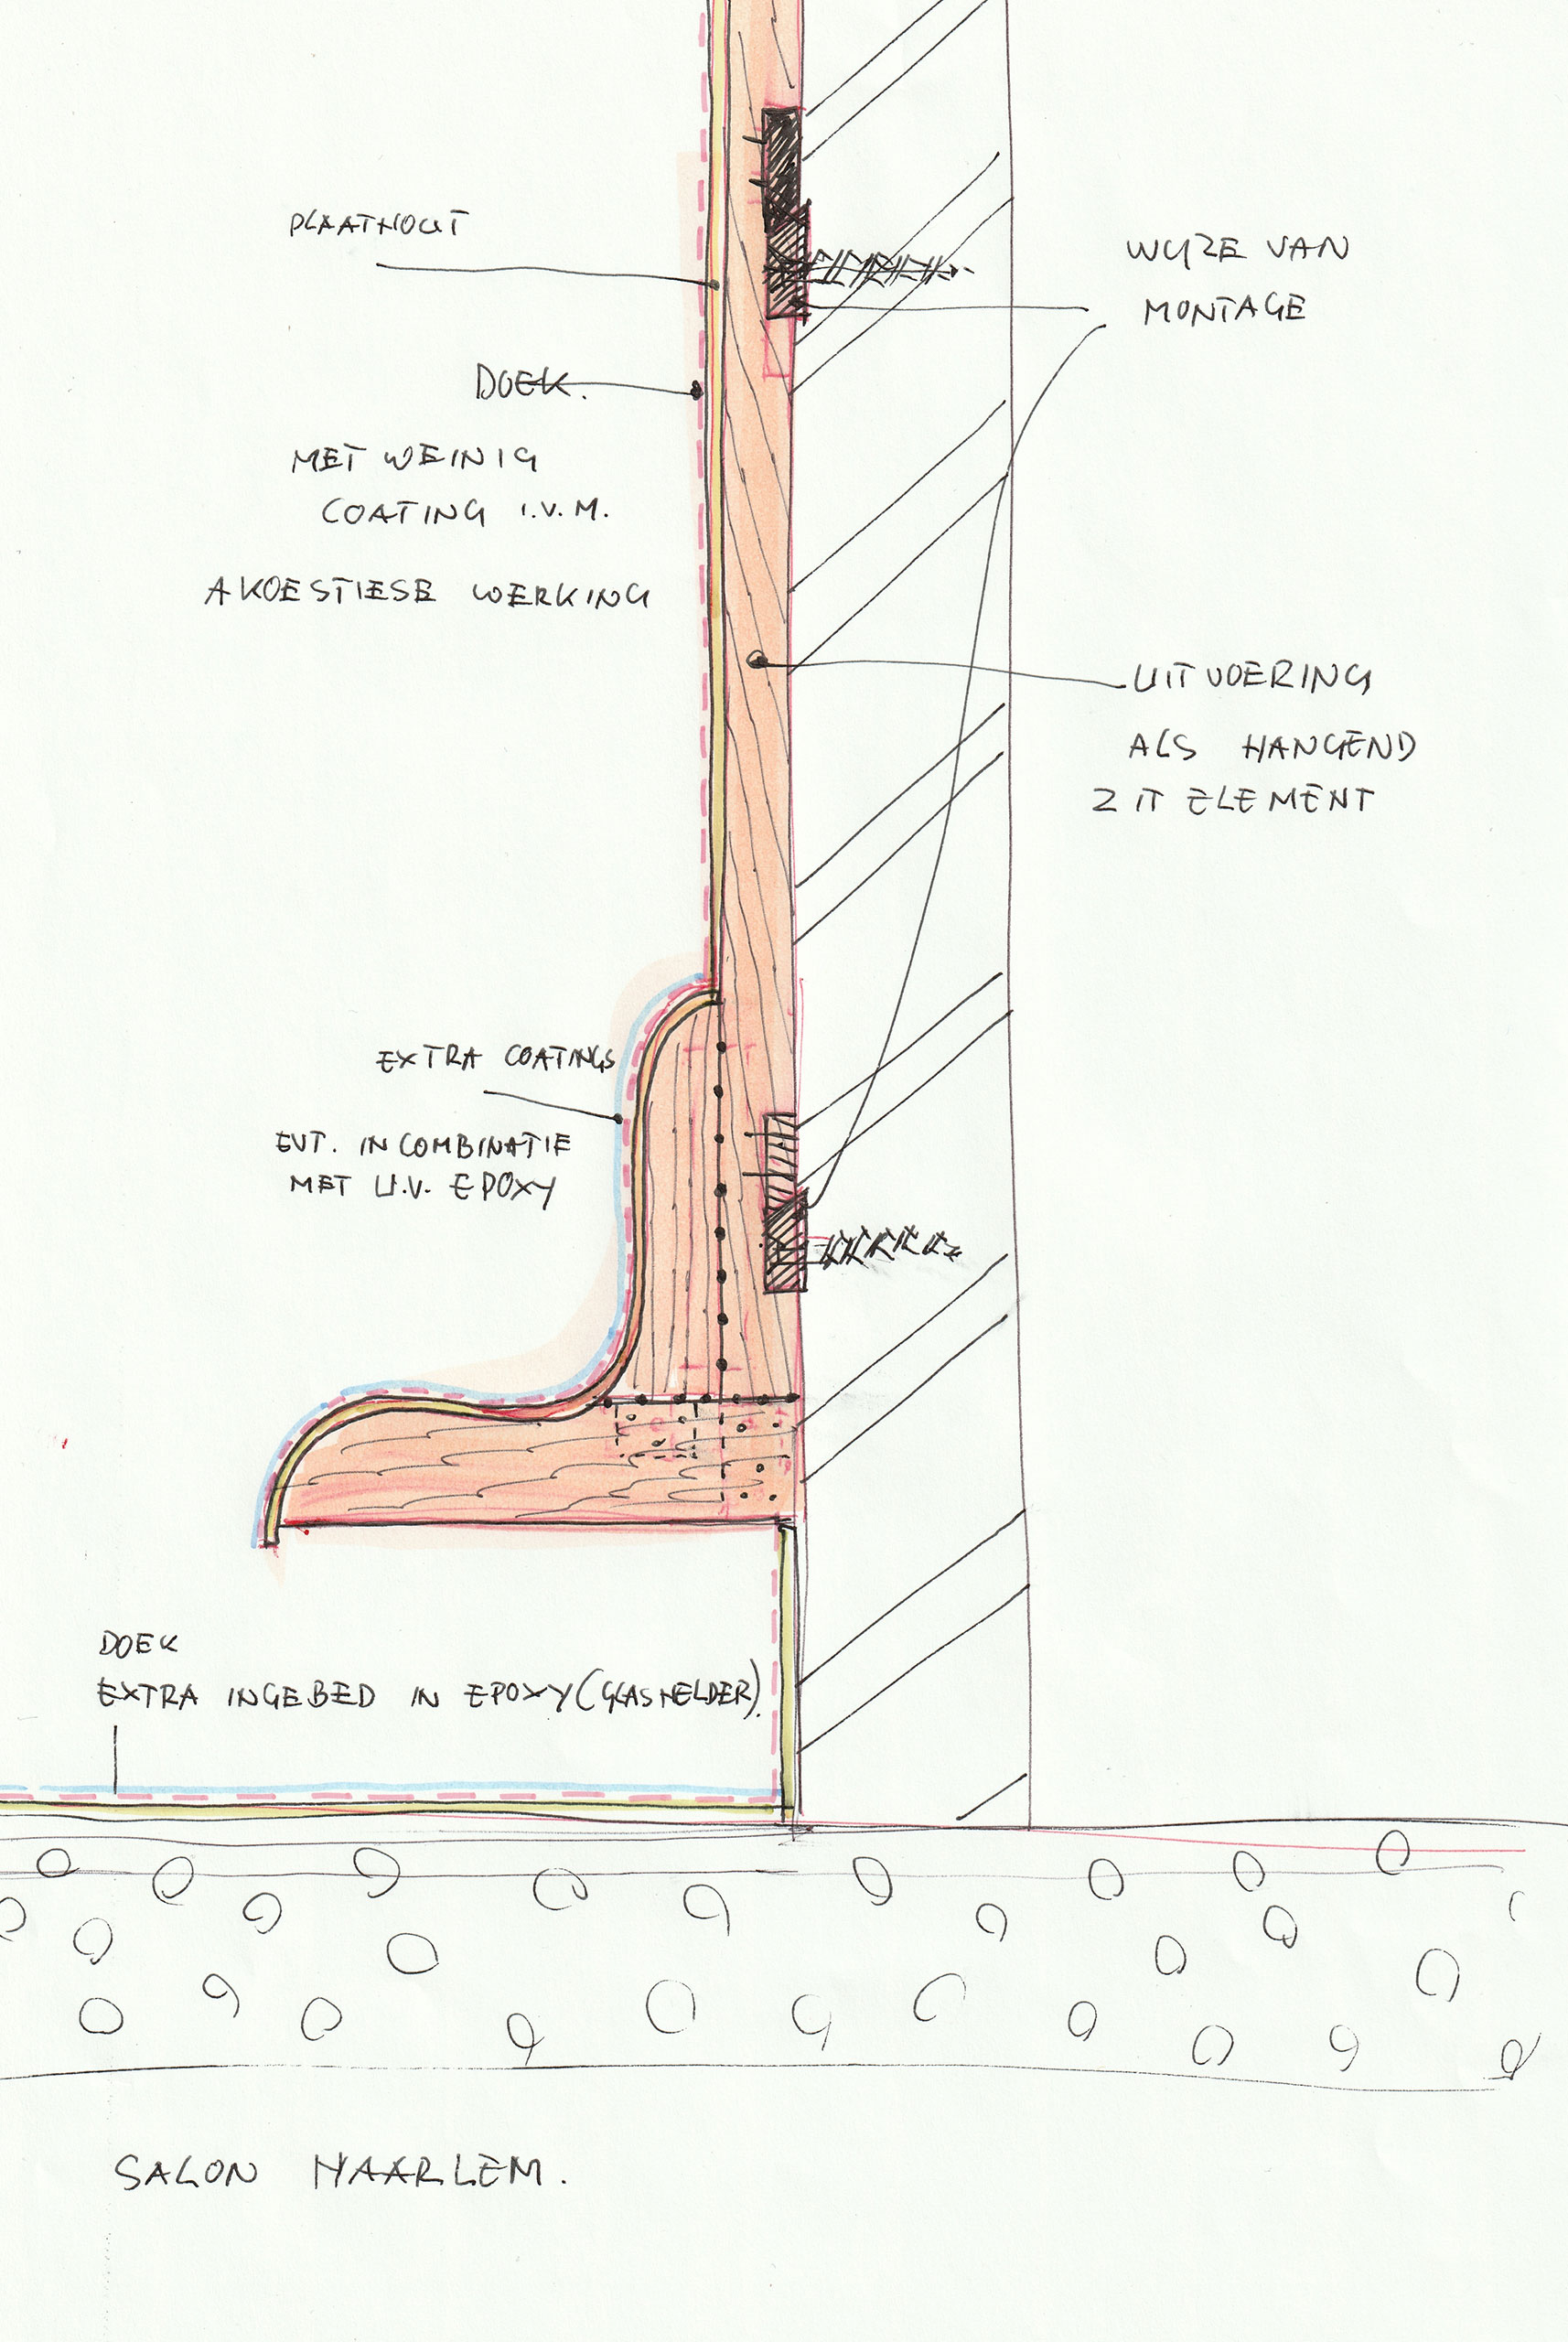 PLAATHOUT
WYZE VAN
MONTAGE
DOEK.
MET WEINIG
COATING I.V.M.
AKOESTIESE WERKING
UITVOERING
ALS HANGEND
ZIT ELEMENT
EXTRA COATINGS
EVT. IN COMBINATIE
MET U.V. EPOXY
DOEK
EXTRA INGEBED IN EPOXY (GLASHELDER).
SALON HAARLEM.